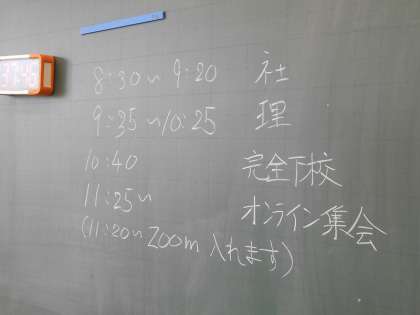 8:30~9:20 社
9:35~10:25 理
10:40 完全下校
11:25~ オンライン集会
(11:20~Zoom入れます)